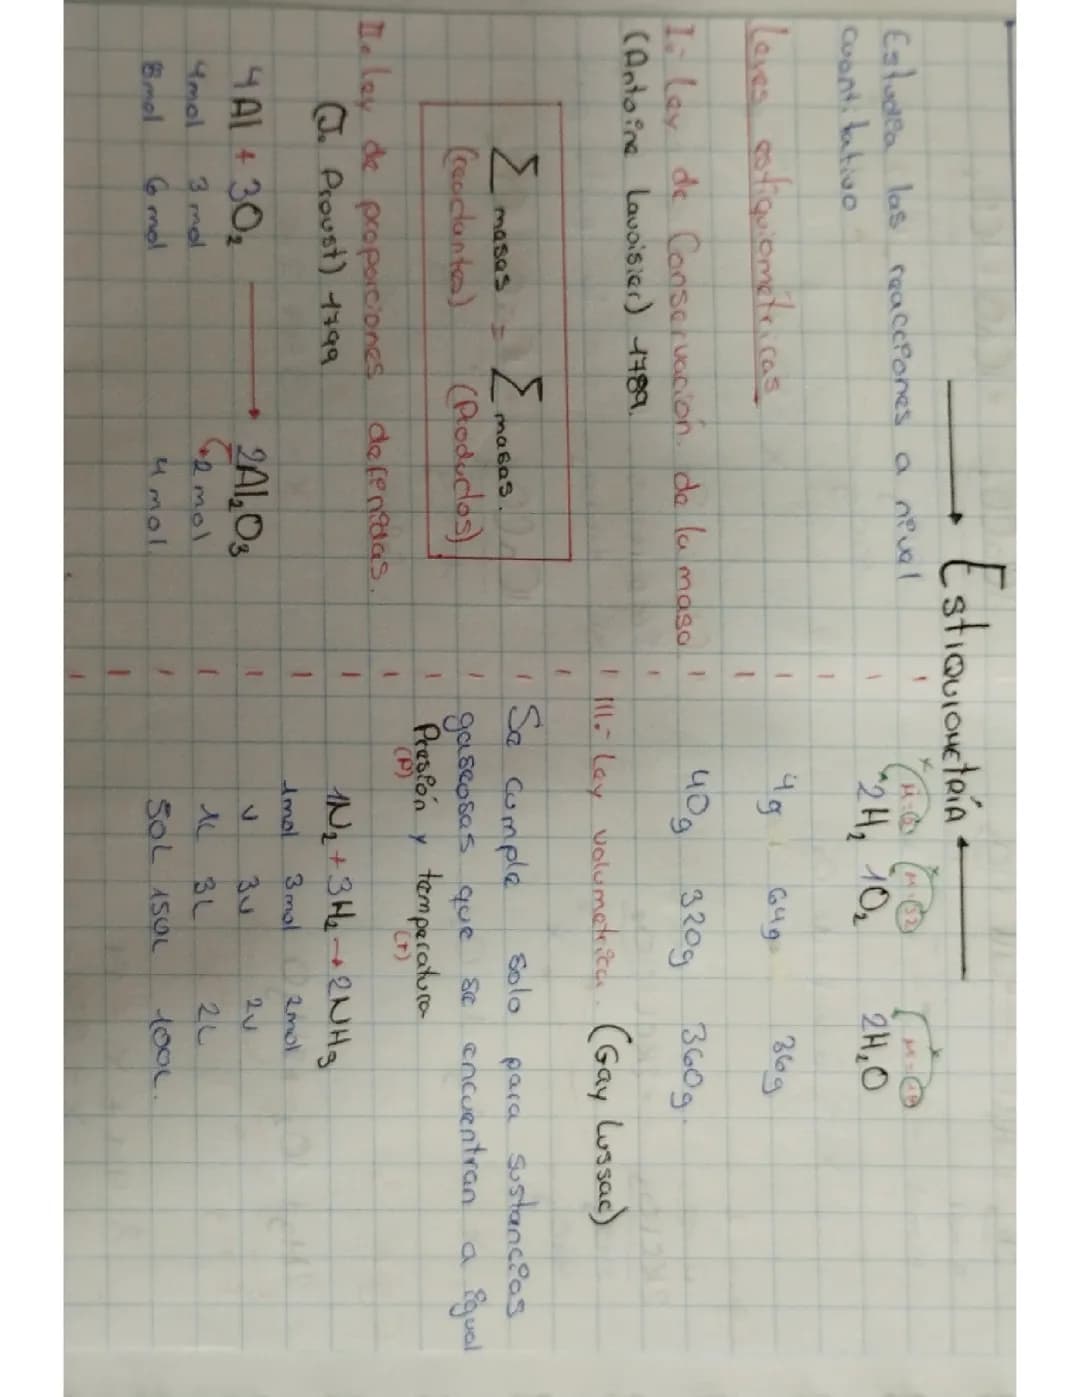 ESTIQUIOMETRÍA
Estudia las reacciones a nivel
cuantitativo
Leyes estiquiométricas
I.- Ley de Conservación de la masa
(Antoine Lavoisier) 1789.
∑ masas = ∑ masas.
(reactantes) (Productos)
II. Ley de proporciones definidas.
(J. Proust) 1799
4Al + 3O₂ → 2Al₂O₃
4mol 3mol 2mol
8mol 6mol 4mol
M=32
2H₂ 1O₂ 2H₂O
4g 64g 36g
40g 320g 360g.
III.- Ley volumetrica. (Gay Lussac)
Se cumple solo para sustancias
gaseosas que se encuentran a igual
Presión y temperatura
(P) (T)
1N₂ + 3H₂ → 2NH₃
1mol 3mol 2mol
v 3v 2v
1L 3L 2L
50L 150L 100L.